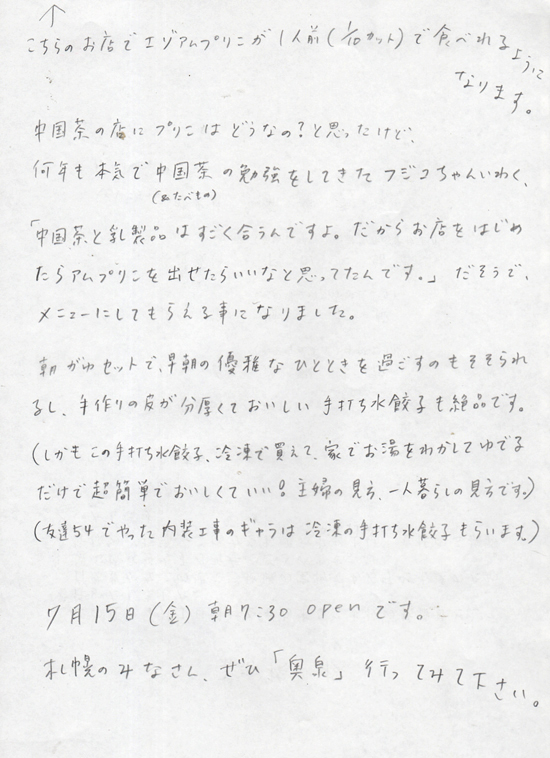 ↑
こちらのお店でエゾアムプリンが1人前(1/10カット)で食べれるように
なります。
中国茶の店にプリンはどうなの?と思ったけど、
何年も本気で中国茶の勉強をしてきたフジコちゃんいわく、
(&たべもの)
「中国茶と乳製品はすごく合うんですよ。だからお店をはじめ
たらアムプリンを出せたらいいなと思ってたんです。」だそうで、
メニューにしてもらえる事になりました。
朝がゆセットで、早朝の優雅なひとときを過ごすのもそそられ
るし、手作りの皮が分厚くておいしい手打ち水餃子も絶品です。
(しかもこの手打ち水餃子、冷凍で買えて、家でお湯をわかしてゆでる
だけで超簡単でおいしくていい!主婦の見方、一人暮らしの見方です。)
(友達54でやった内装工事のギャラは冷凍の手打ち水餃子もらいます。)
7月15日(金)朝7:30 openです。
札幌のみなさん、ぜひ「奥泉」行ってみて下さい。